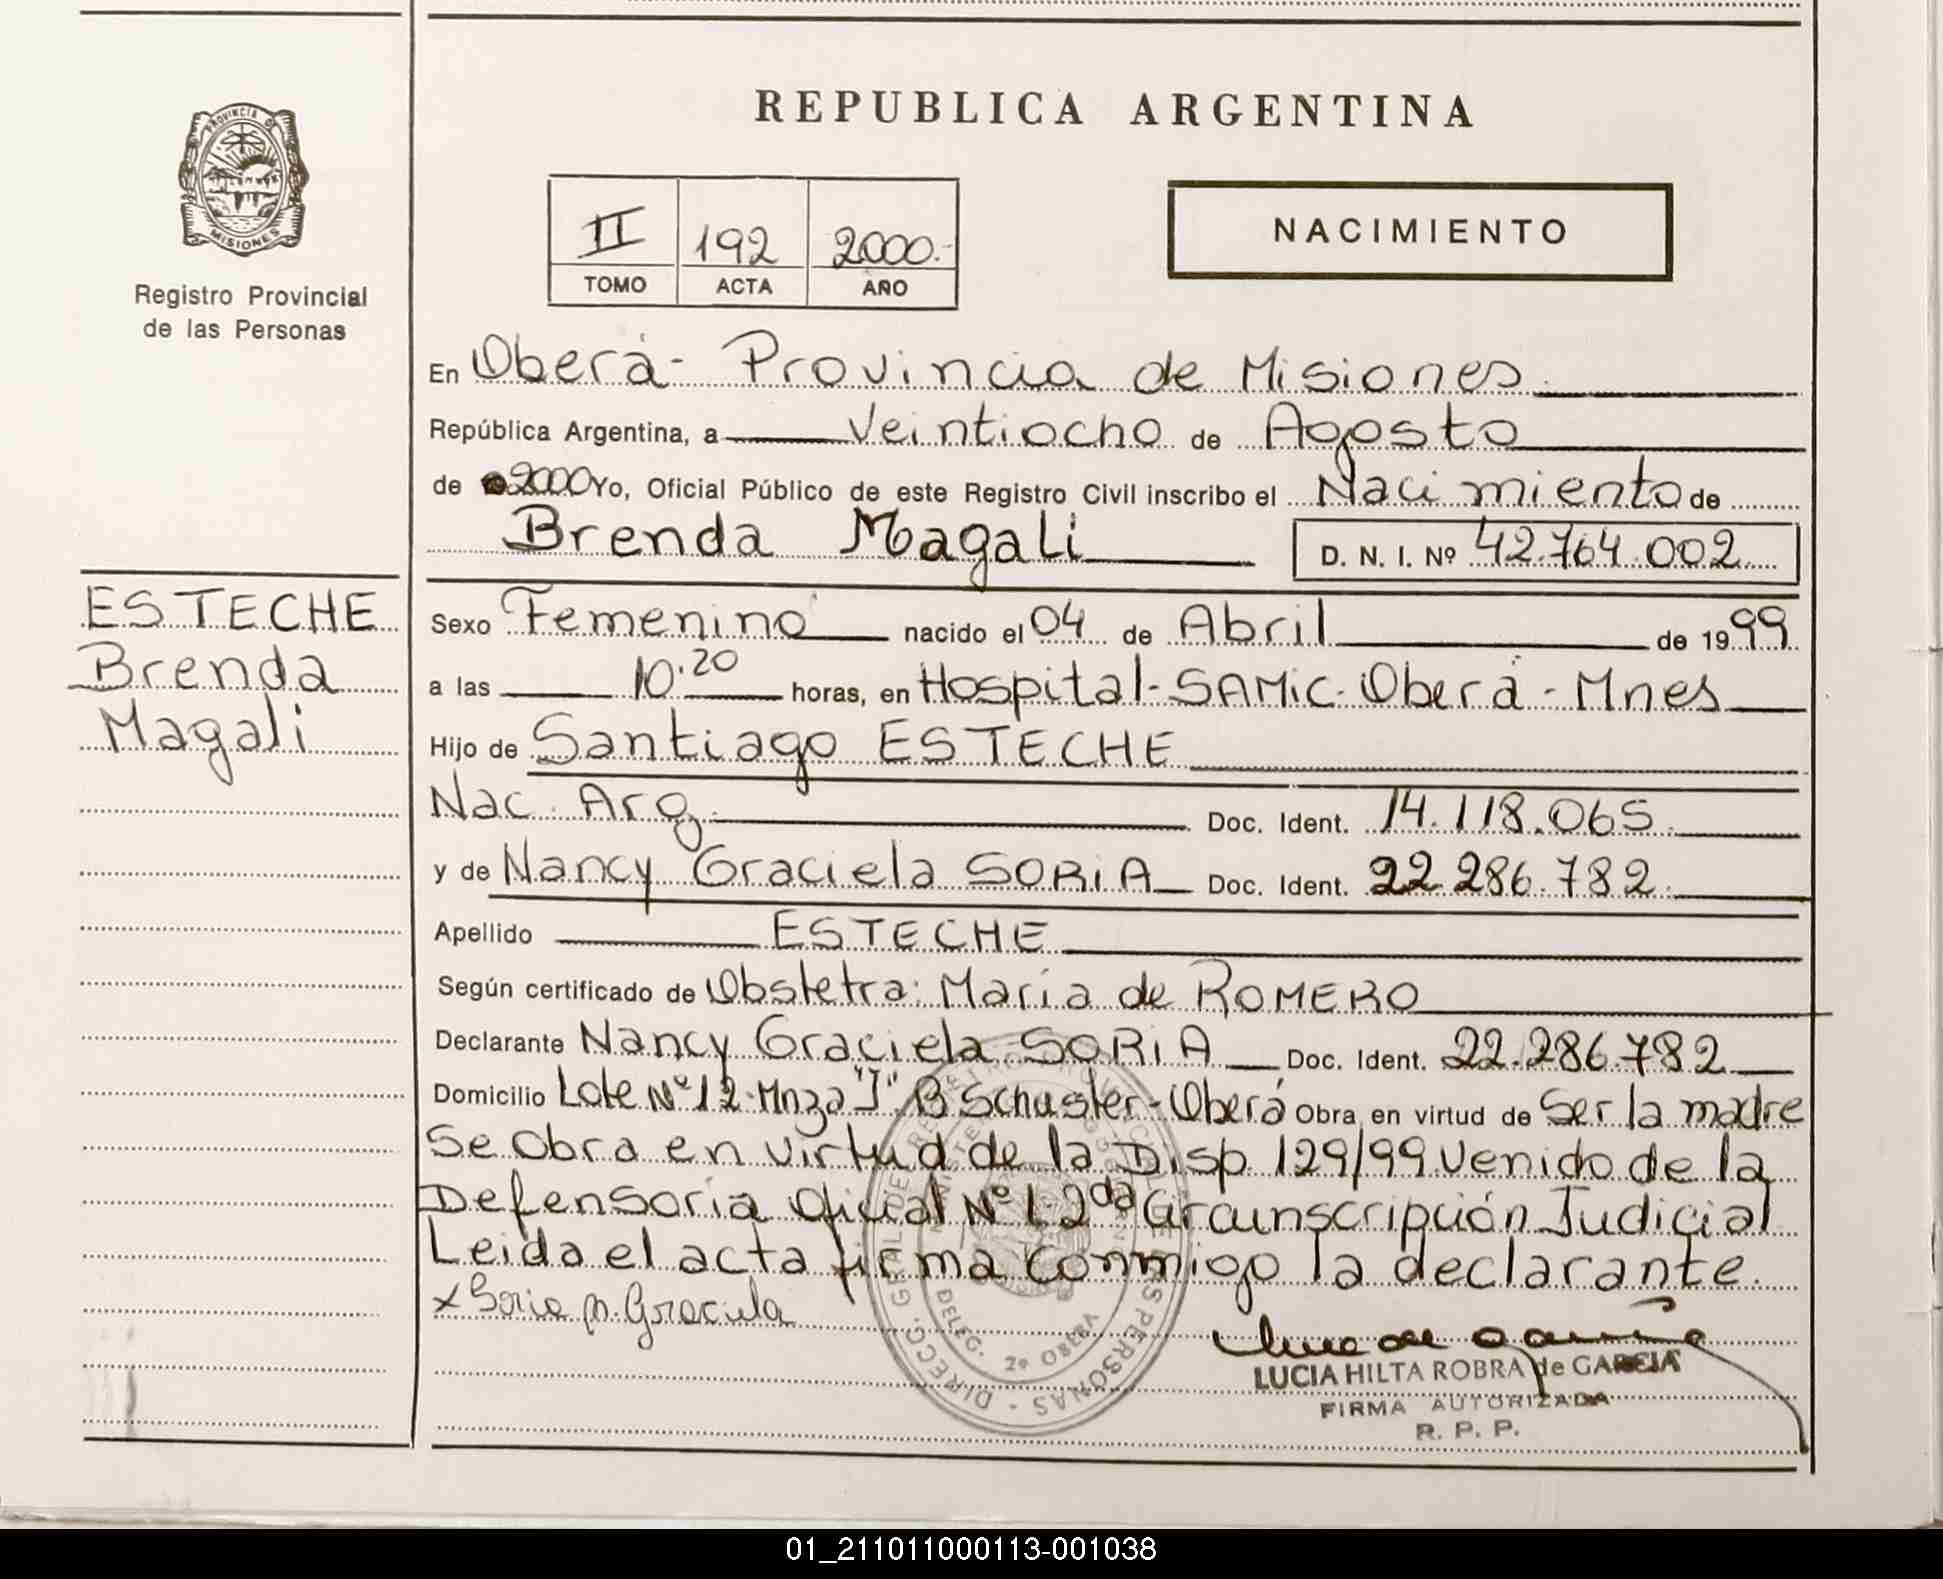 PROVINCIA DE
MISIONES
Registro Provincial
de las Personas
REPUBLICA ARGENTINA
II 192 2000.-
TOMO ACTA AÑO
NACIMIENTO
En Oberá - Provincia de Misiones
República Argentina, a Veintiocho de Agosto
de 2000 Yo, Oficial Público de este Registro Civil inscribo el Nacimiento de
Brenda Magali D. N. I. Nº 42.764.002
ESTECHE
Brenda
Magali
Sexo Femenino nacido el 04 de Abril de 1999
a las 10.20 horas, en Hospital - SAMIC. Oberá - Mnes
Hijo de Santiago ESTECHE
Nac. Arg. Doc. Ident. 14.118.065
y de Nancy Graciela SORIA Doc. Ident. 22.286.782
Apellido ESTECHE
Según certificado de Obstetra: María de ROMERO
Declarante Nancy Graciela SORIA Doc. Ident. 22.286.782
Domicilio Lote Nº 12 Mnza "J" Bº Schuster - Oberá Obra en virtud de Ser la madre
Se Obra en virtud de la Disp. 129/99 Venido de la
Defensoria Oficial Nº 1. 2da Circunscripción Judicial
Leida el acta firma conmigo la declarante.
x Soria N. Graciela
DELEG. 2º OBERA
LUCIA HILTA ROBRA de GARCIA
FIRMA AUTORIZADA
R. P. P.
01_211011000113-001038